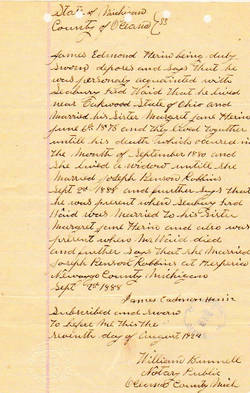 State of Michigan
County of Oceana } SS
James Edmond Herin being duly
sworn depores and says that he
was personaly acquainted with
Seabury Ford Waid that he lived
near Oakwood State of Ohio and
Married his Sister Margaret Jane Herin
June 6th 1875 and they lived together
untill his death which occured in
the Month of September 1880 and
She lived a widow untill she
Married Joseph Benson Robbins
Sept 2d 1888 and further Says that
he was present when Seabury Ford
Waid was Married to his Sister
Margaret Jane Herin and also was
present when Mr Waid died
and further Says that She Married
Joseph Benson Robbins at
Newaygo County Michigan
Sept 2d 1888
James Edmon Herin
Subscribed and sworn
to before me this the
seventh day of August
William
Notary Public
County Mich